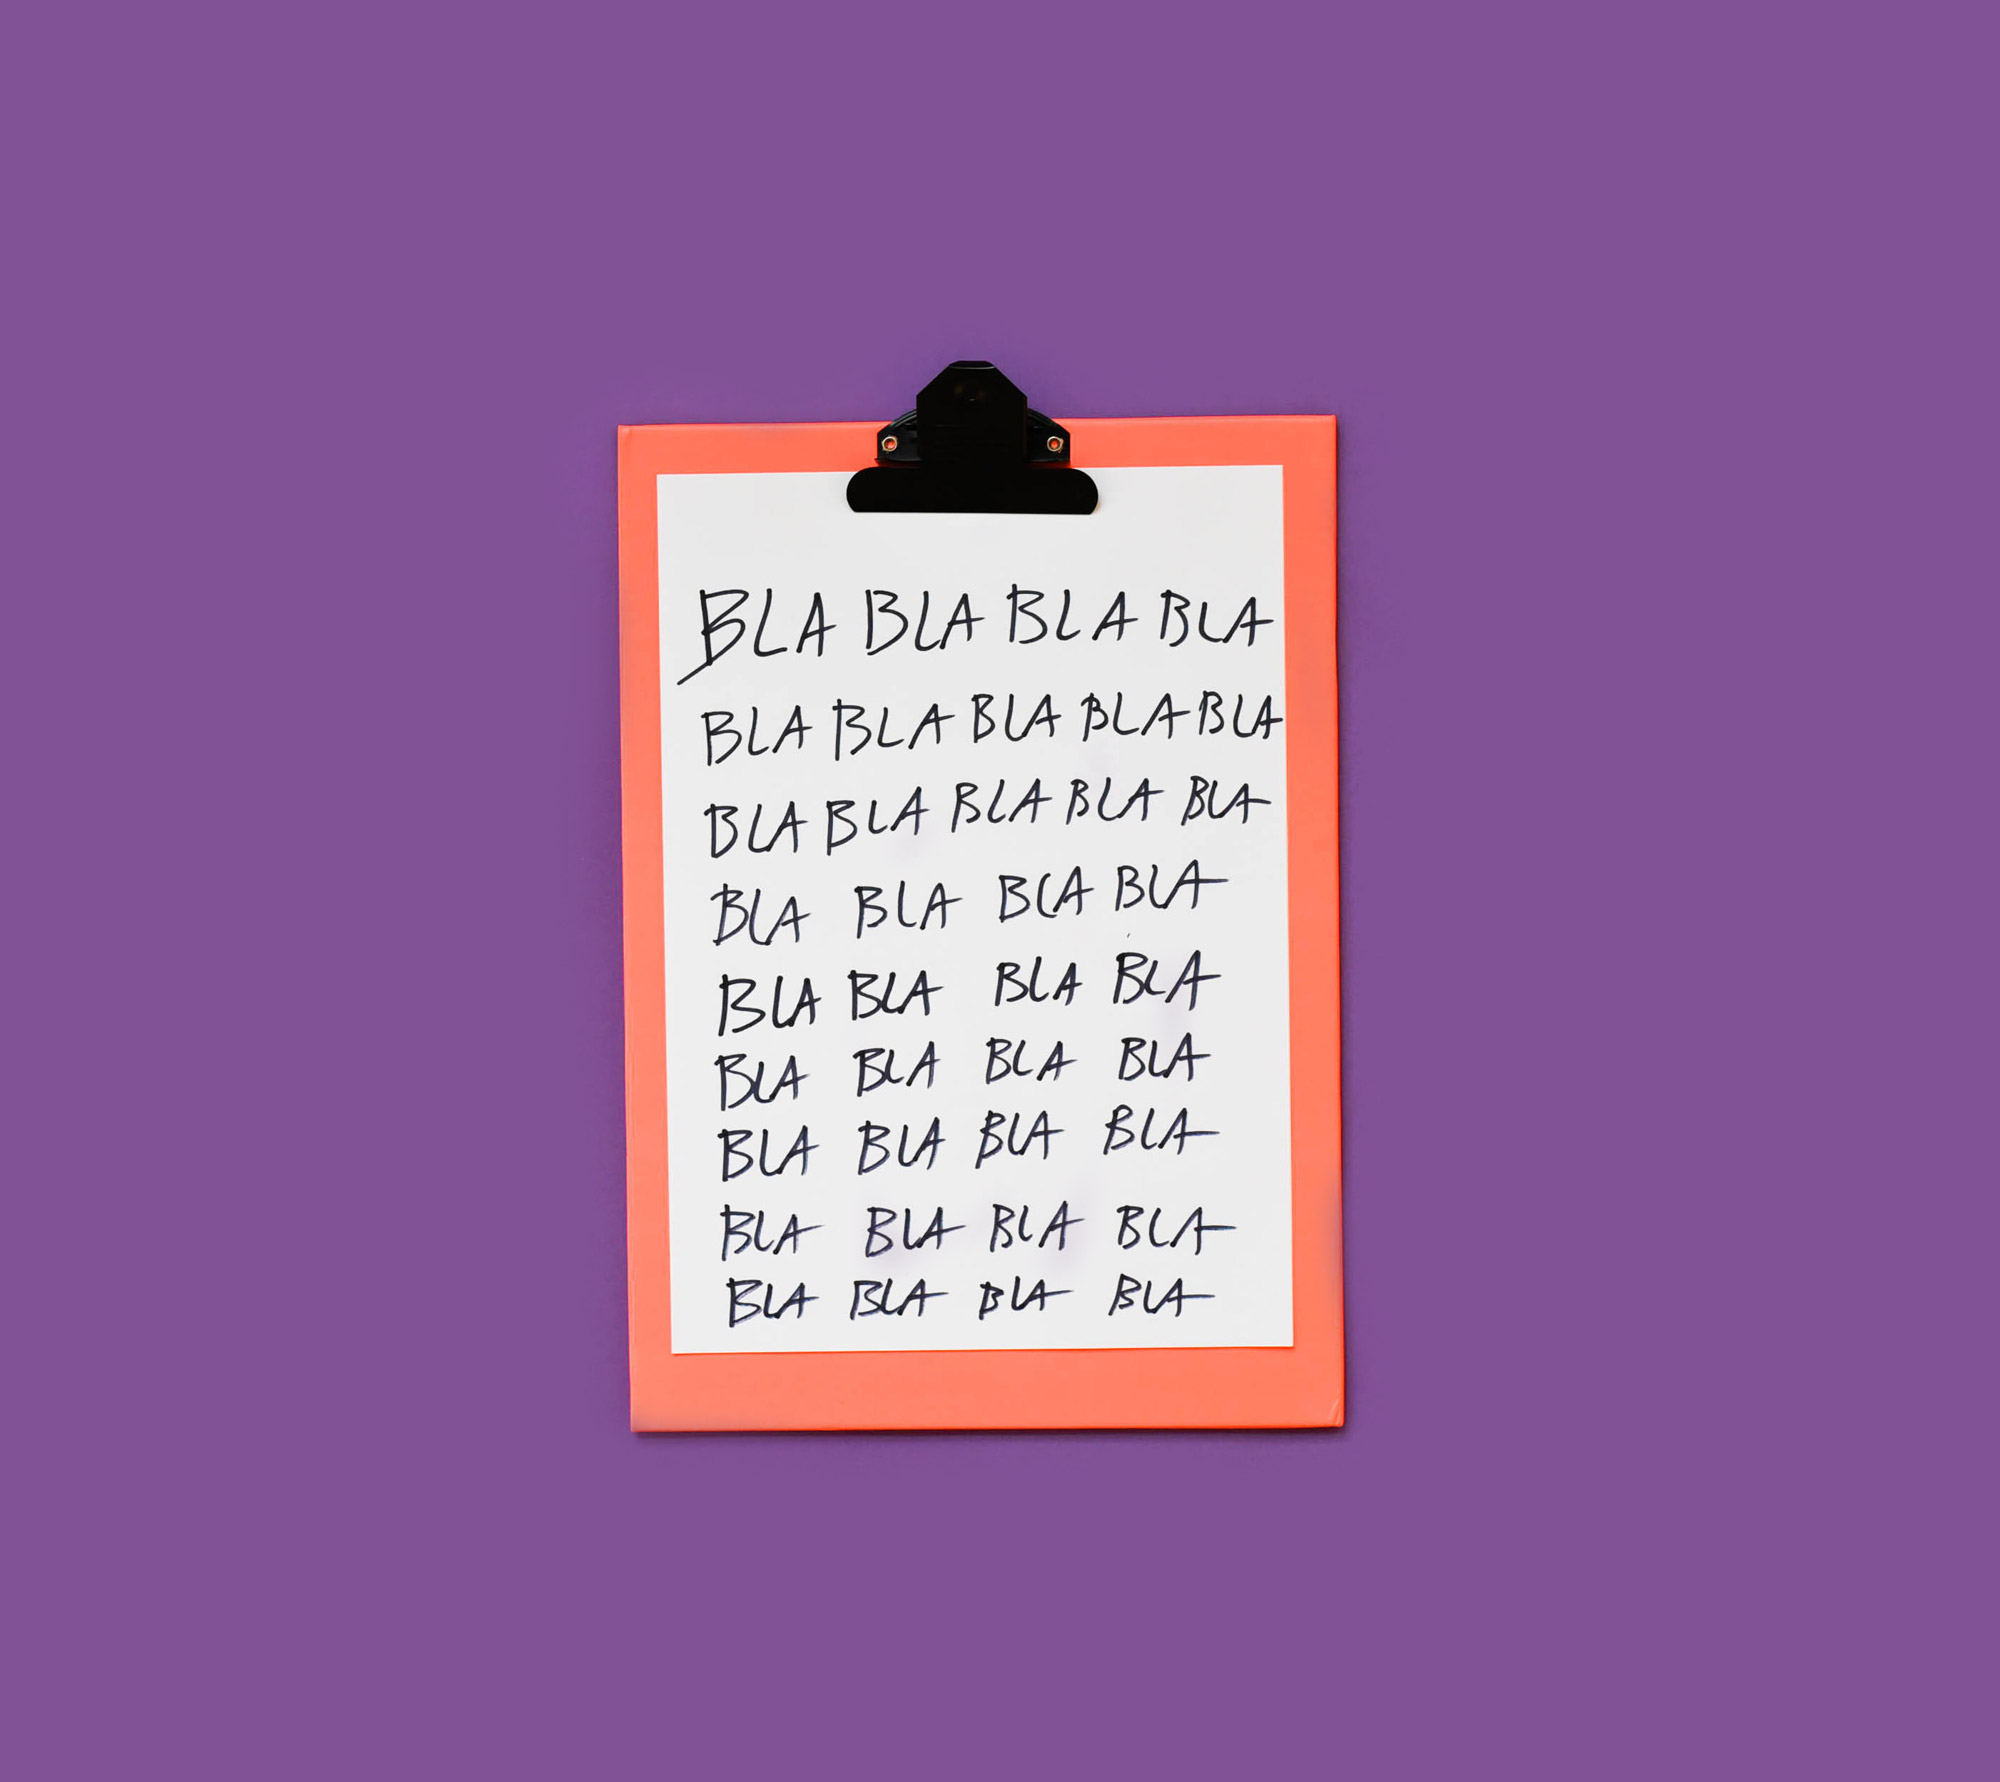 BLA BLA BLA BLA
BLA BLA BLA BLA BLA
BLA BLA BLA BLA BLA
BLA BLA BLA BLA
BLA BLA BLA BLA
BLA BLA BLA BLA
BLA BLA BLA BLA
BLA BLA BLA BLA
BLA BLA BLA BLA